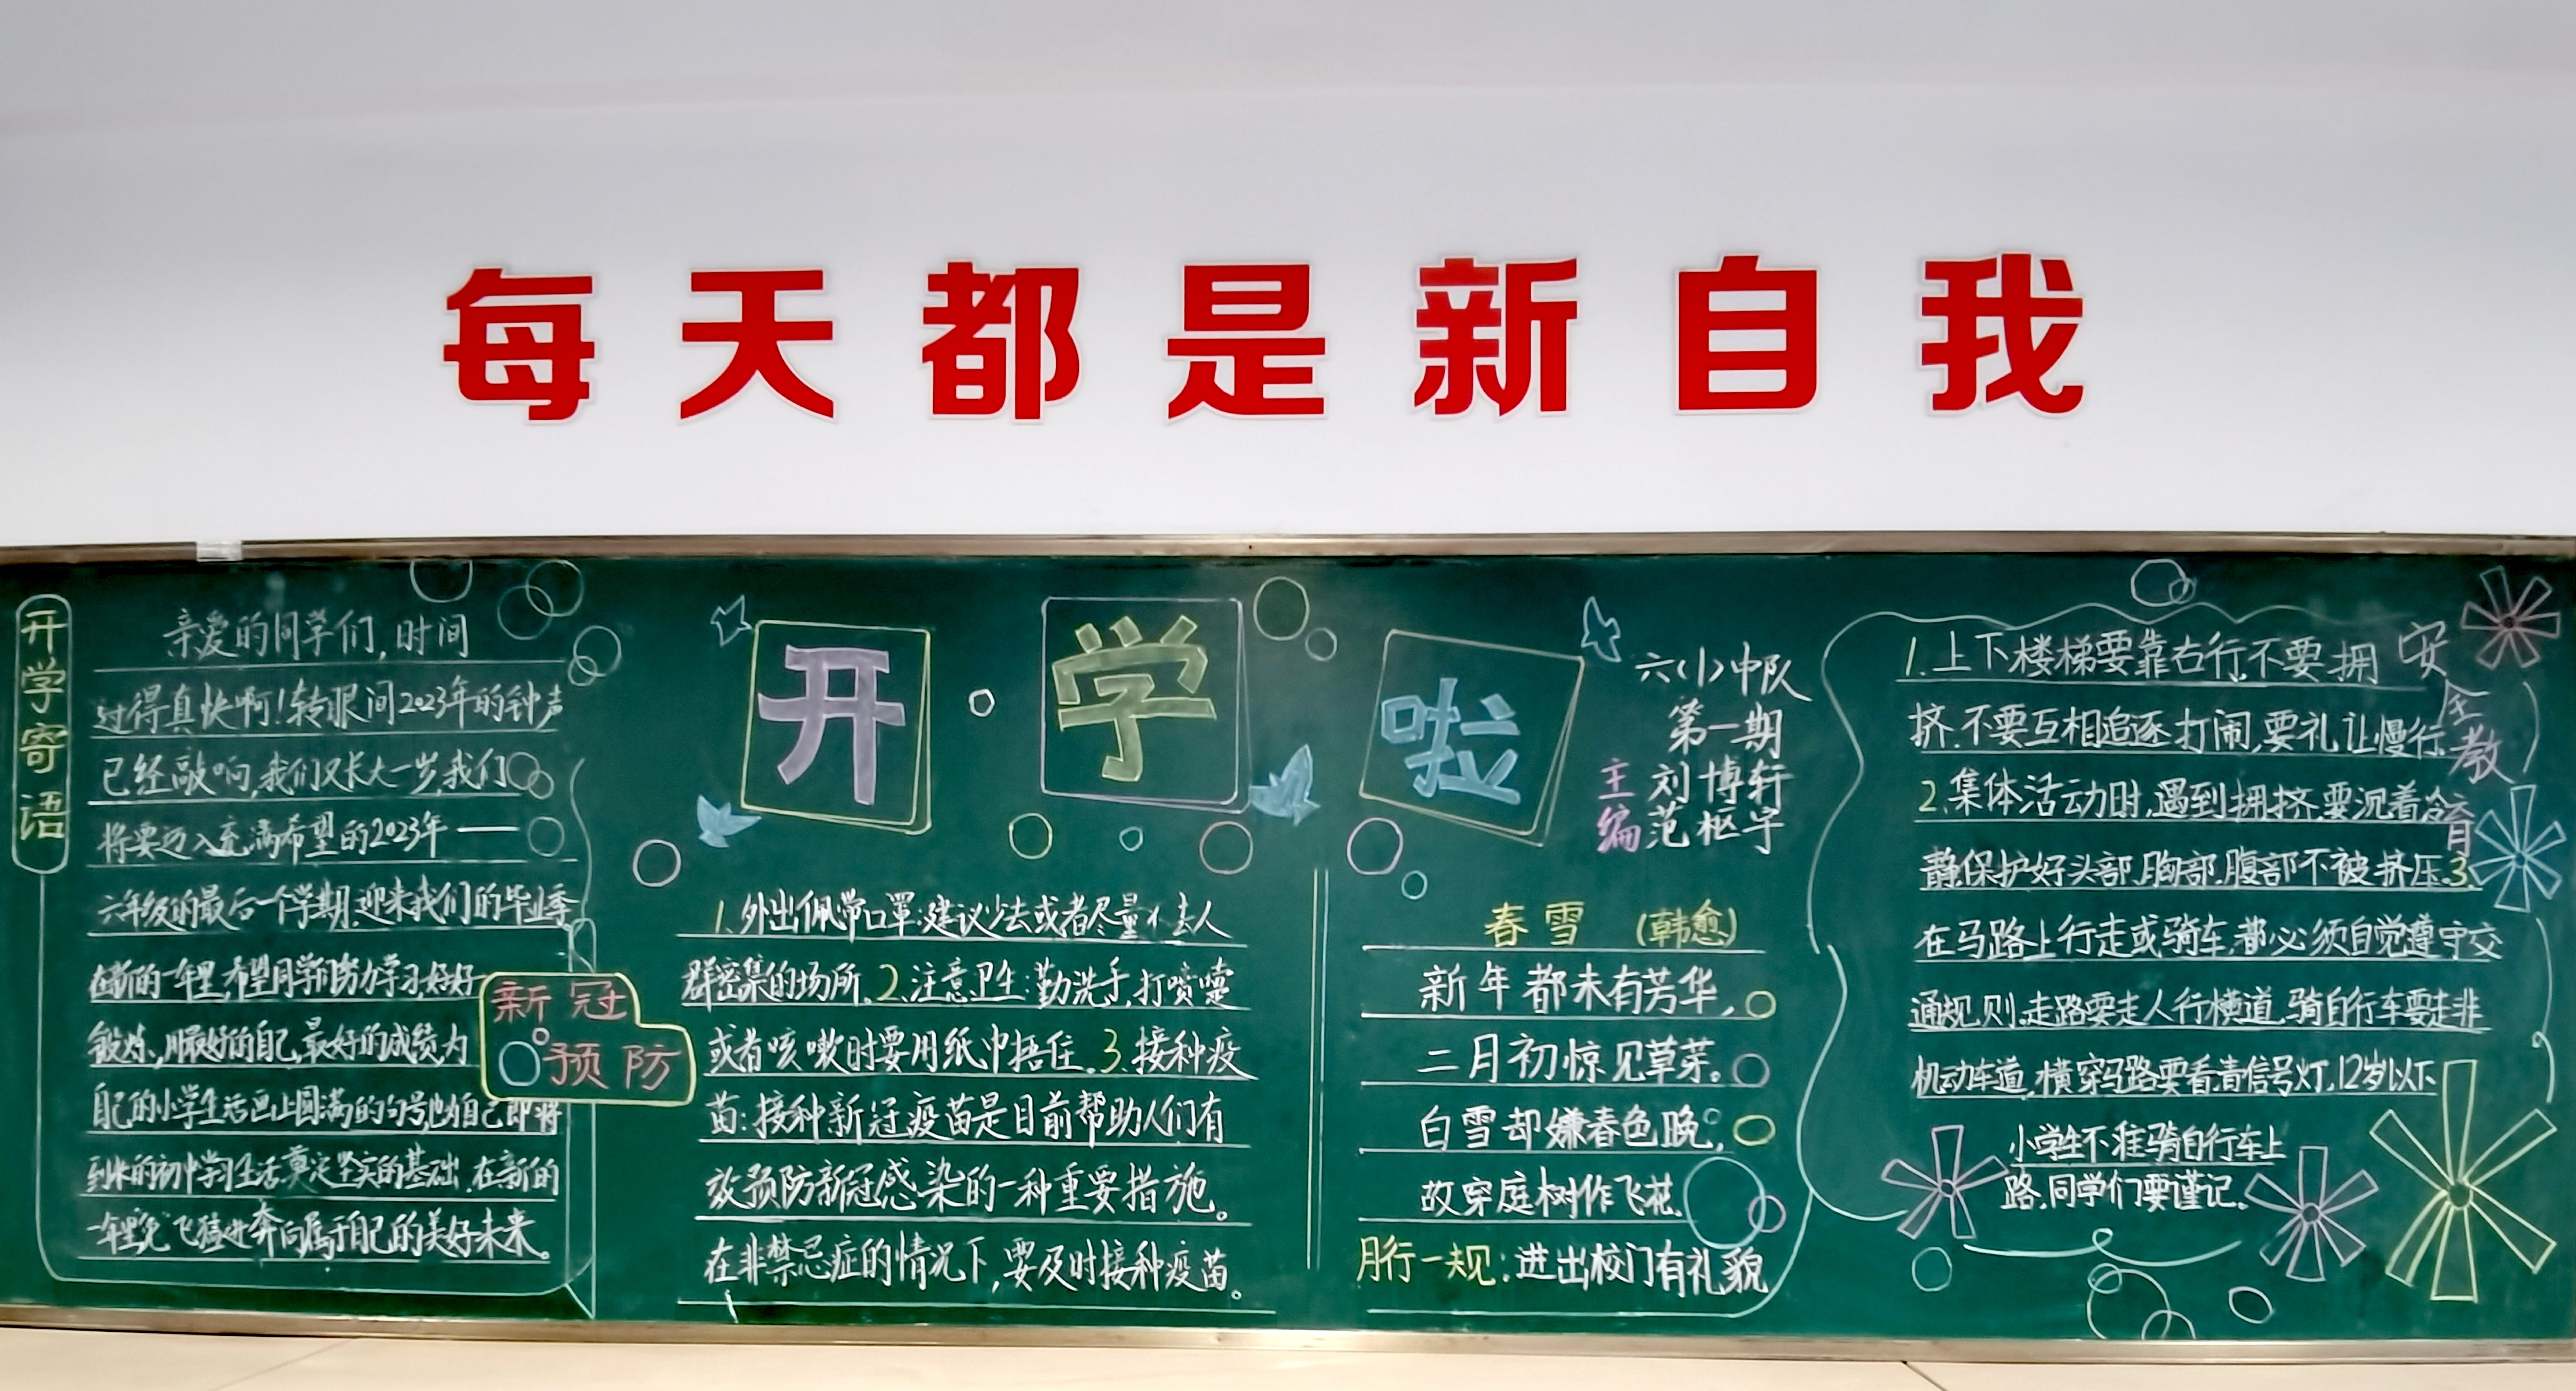 每天都是新自我
开学寄语
亲爱的同学们,时间
过得真快啊!转眼间2023年的钟声
已经敲响,我们又长大一岁,我们
将要迈入充满希望的2023年——
六年级的最后一个学期.迎来我们的毕业季
在新的一年里,希望同学们努力学习,好好
锻炼、用最好的自己,最好的成绩,为
自己的小学生活画上圆满的句号,也为自己即将
到来的初中学习生活奠定坚实的基础.在新的
一年里 飞猛进奔向属于自己的美好未来。
新冠
预防
开学啦
1.外出佩带口罩:建议少去或者尽量不去人
群密集的场所.2.注意卫生:勤洗手,打喷嚏
或者咳嗽时要用纸巾捂住。3.接种疫
苗:接种新冠疫苗是目前帮助人们有
效预防新冠感染的一种重要措施。
在非禁忌症的情况下,要及时接种疫苗。
六(1)中队
第一期
主编
刘博轩
范枢宇
春雪 (韩愈)
新年都未有芳华,
二月初惊见草芽。
白雪却嫌春色晚,
故穿庭树作飞花.
月行一规:进出校门有礼貌
安全教育
1.上下楼梯要靠右行.不要拥
挤.不要互相追逐打闹,要礼让慢行.
2.集体活动时,遇到拥挤.要沉着冷
静.保护好头部.胸部.腹部不被挤压.3.
在马路上行走或骑车,都必须自觉遵守交
通规则.走路要走人行横道.骑自行车要走非
机动车道,横穿马路要看清信号灯,12岁以下
小学生不准骑自行车上
路.同学们要谨记。